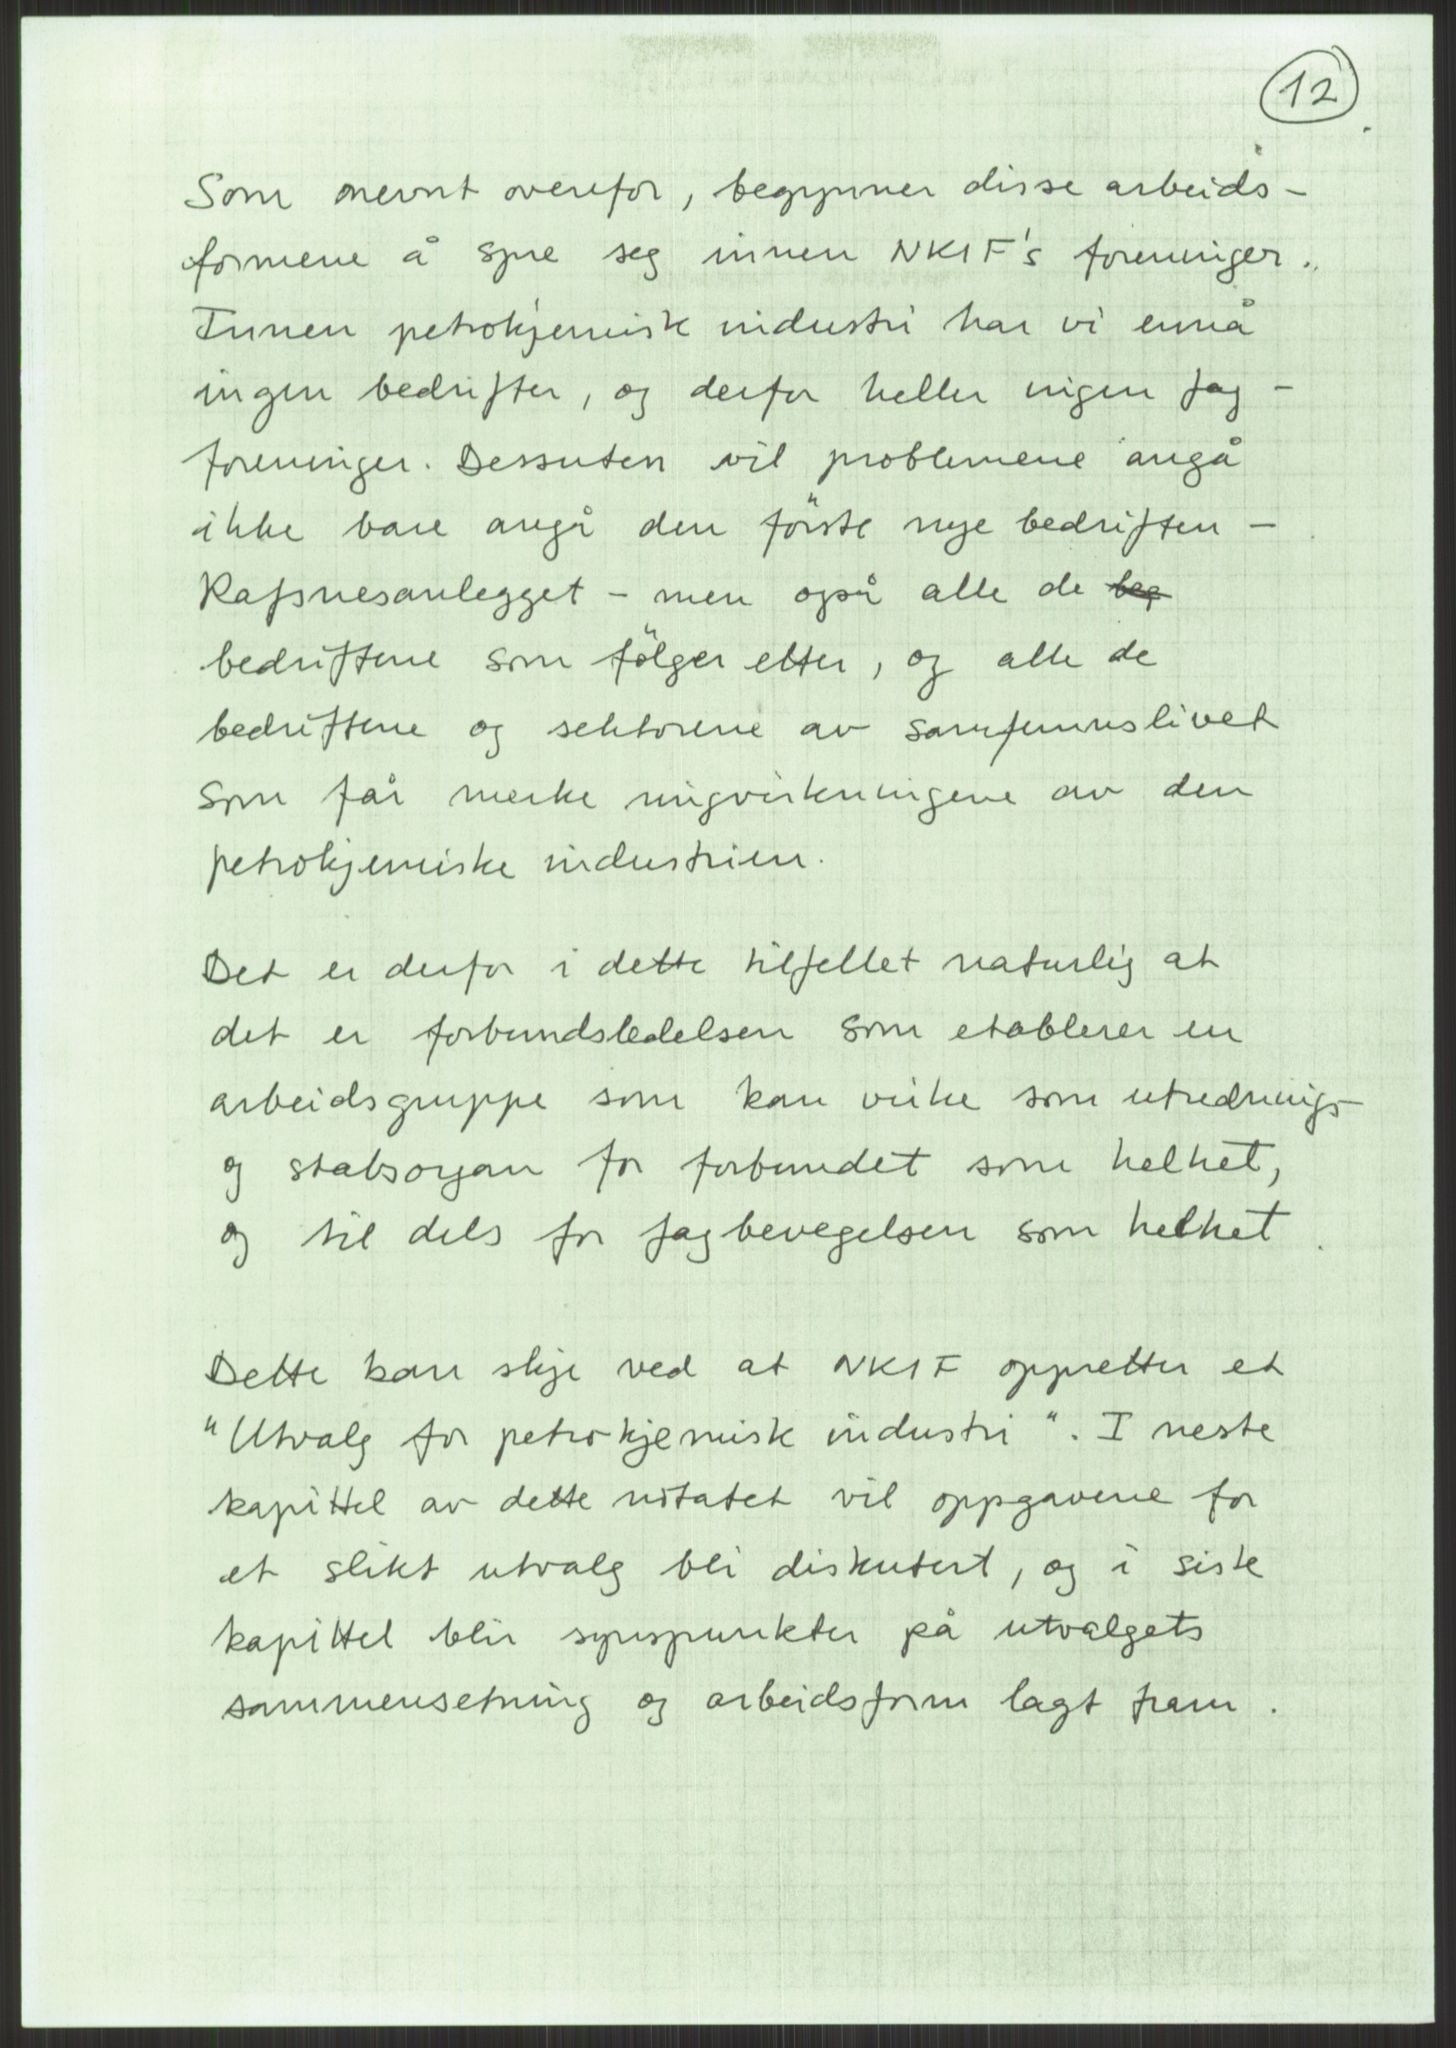 12
Som nevnt ovenfor, begynner disse arbeids-
formene å spre seg innen NKIF's foreninger.
Innen petrokjemisk industri har vi ennå
ingen bedrifter, og derfor heller ingen fag-
foreninger. Dessuten vil problemene angå
ikke bare angå den förste nye bedriften -
Rafsnesanlegget - men også alle de beg
bedriftene som fölger etter, og alle de
bedriftene og sektorene av samfunnslivet
som får merke ringvirkningene av den
petrokjemiske industrien.
Det er derfor i dette tilfellet naturlig at
det er forbundsledelsen som etablerer en
arbeidsgruppe som kan virke som utrednings-
og stabsorgan for forbundet som helhet,
og til dels for fagbevegelsen som helhet.
Dette kan skje ved at NKIF oppretter et
"Utvalg for petrokjemisk industri". I neste
kapittel av dette notatet vil oppgavene for
et slikt utvalg bli diskutert, og i siste
kapittel blir synspunkter på utvalgets
sammensetning og arbeidsform lagt fram.